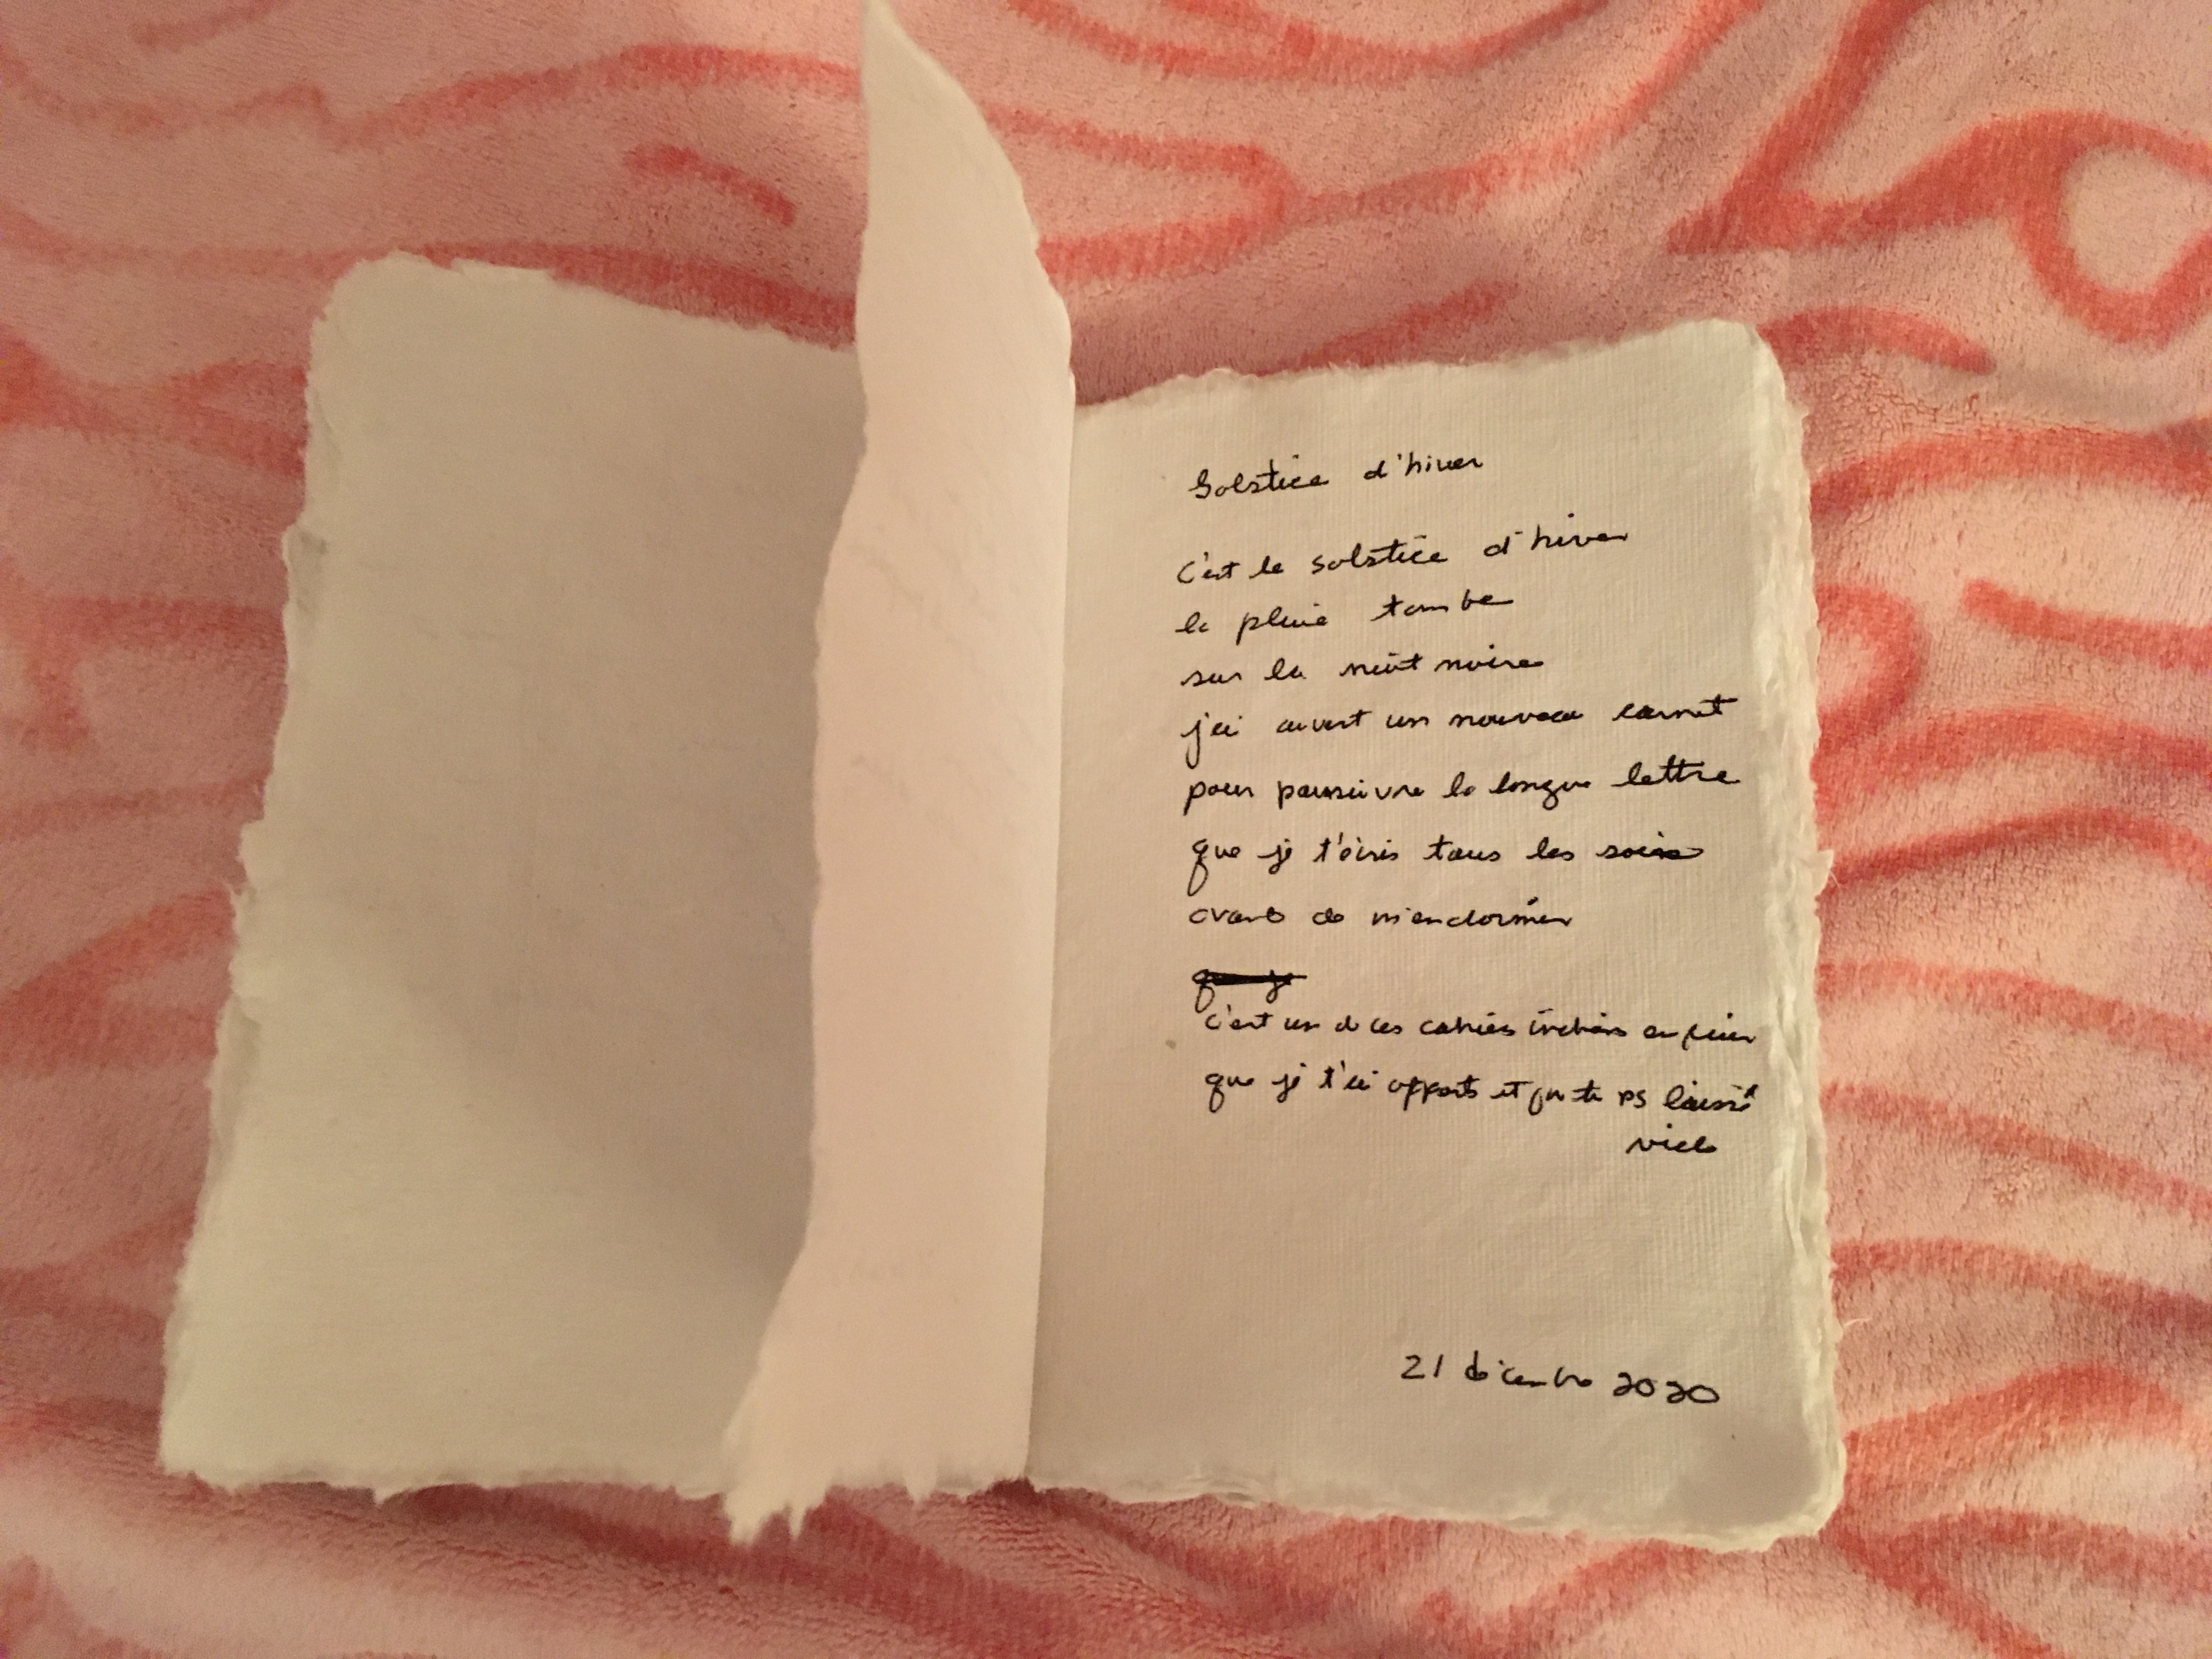 Solstice d'hiver
C'est le solstice d'hiver
la pluie tombe
sur la nuit noire
j'ai ouvert un nouveau carnet
pour poursuivre la longue lettre
que je t'écris tous les soirs
avant de m'endormir
que je
c'est un de ces cahiers indiens en papier
que je t'ai offerts et que tu as laissé
vide
21 décembre 2020